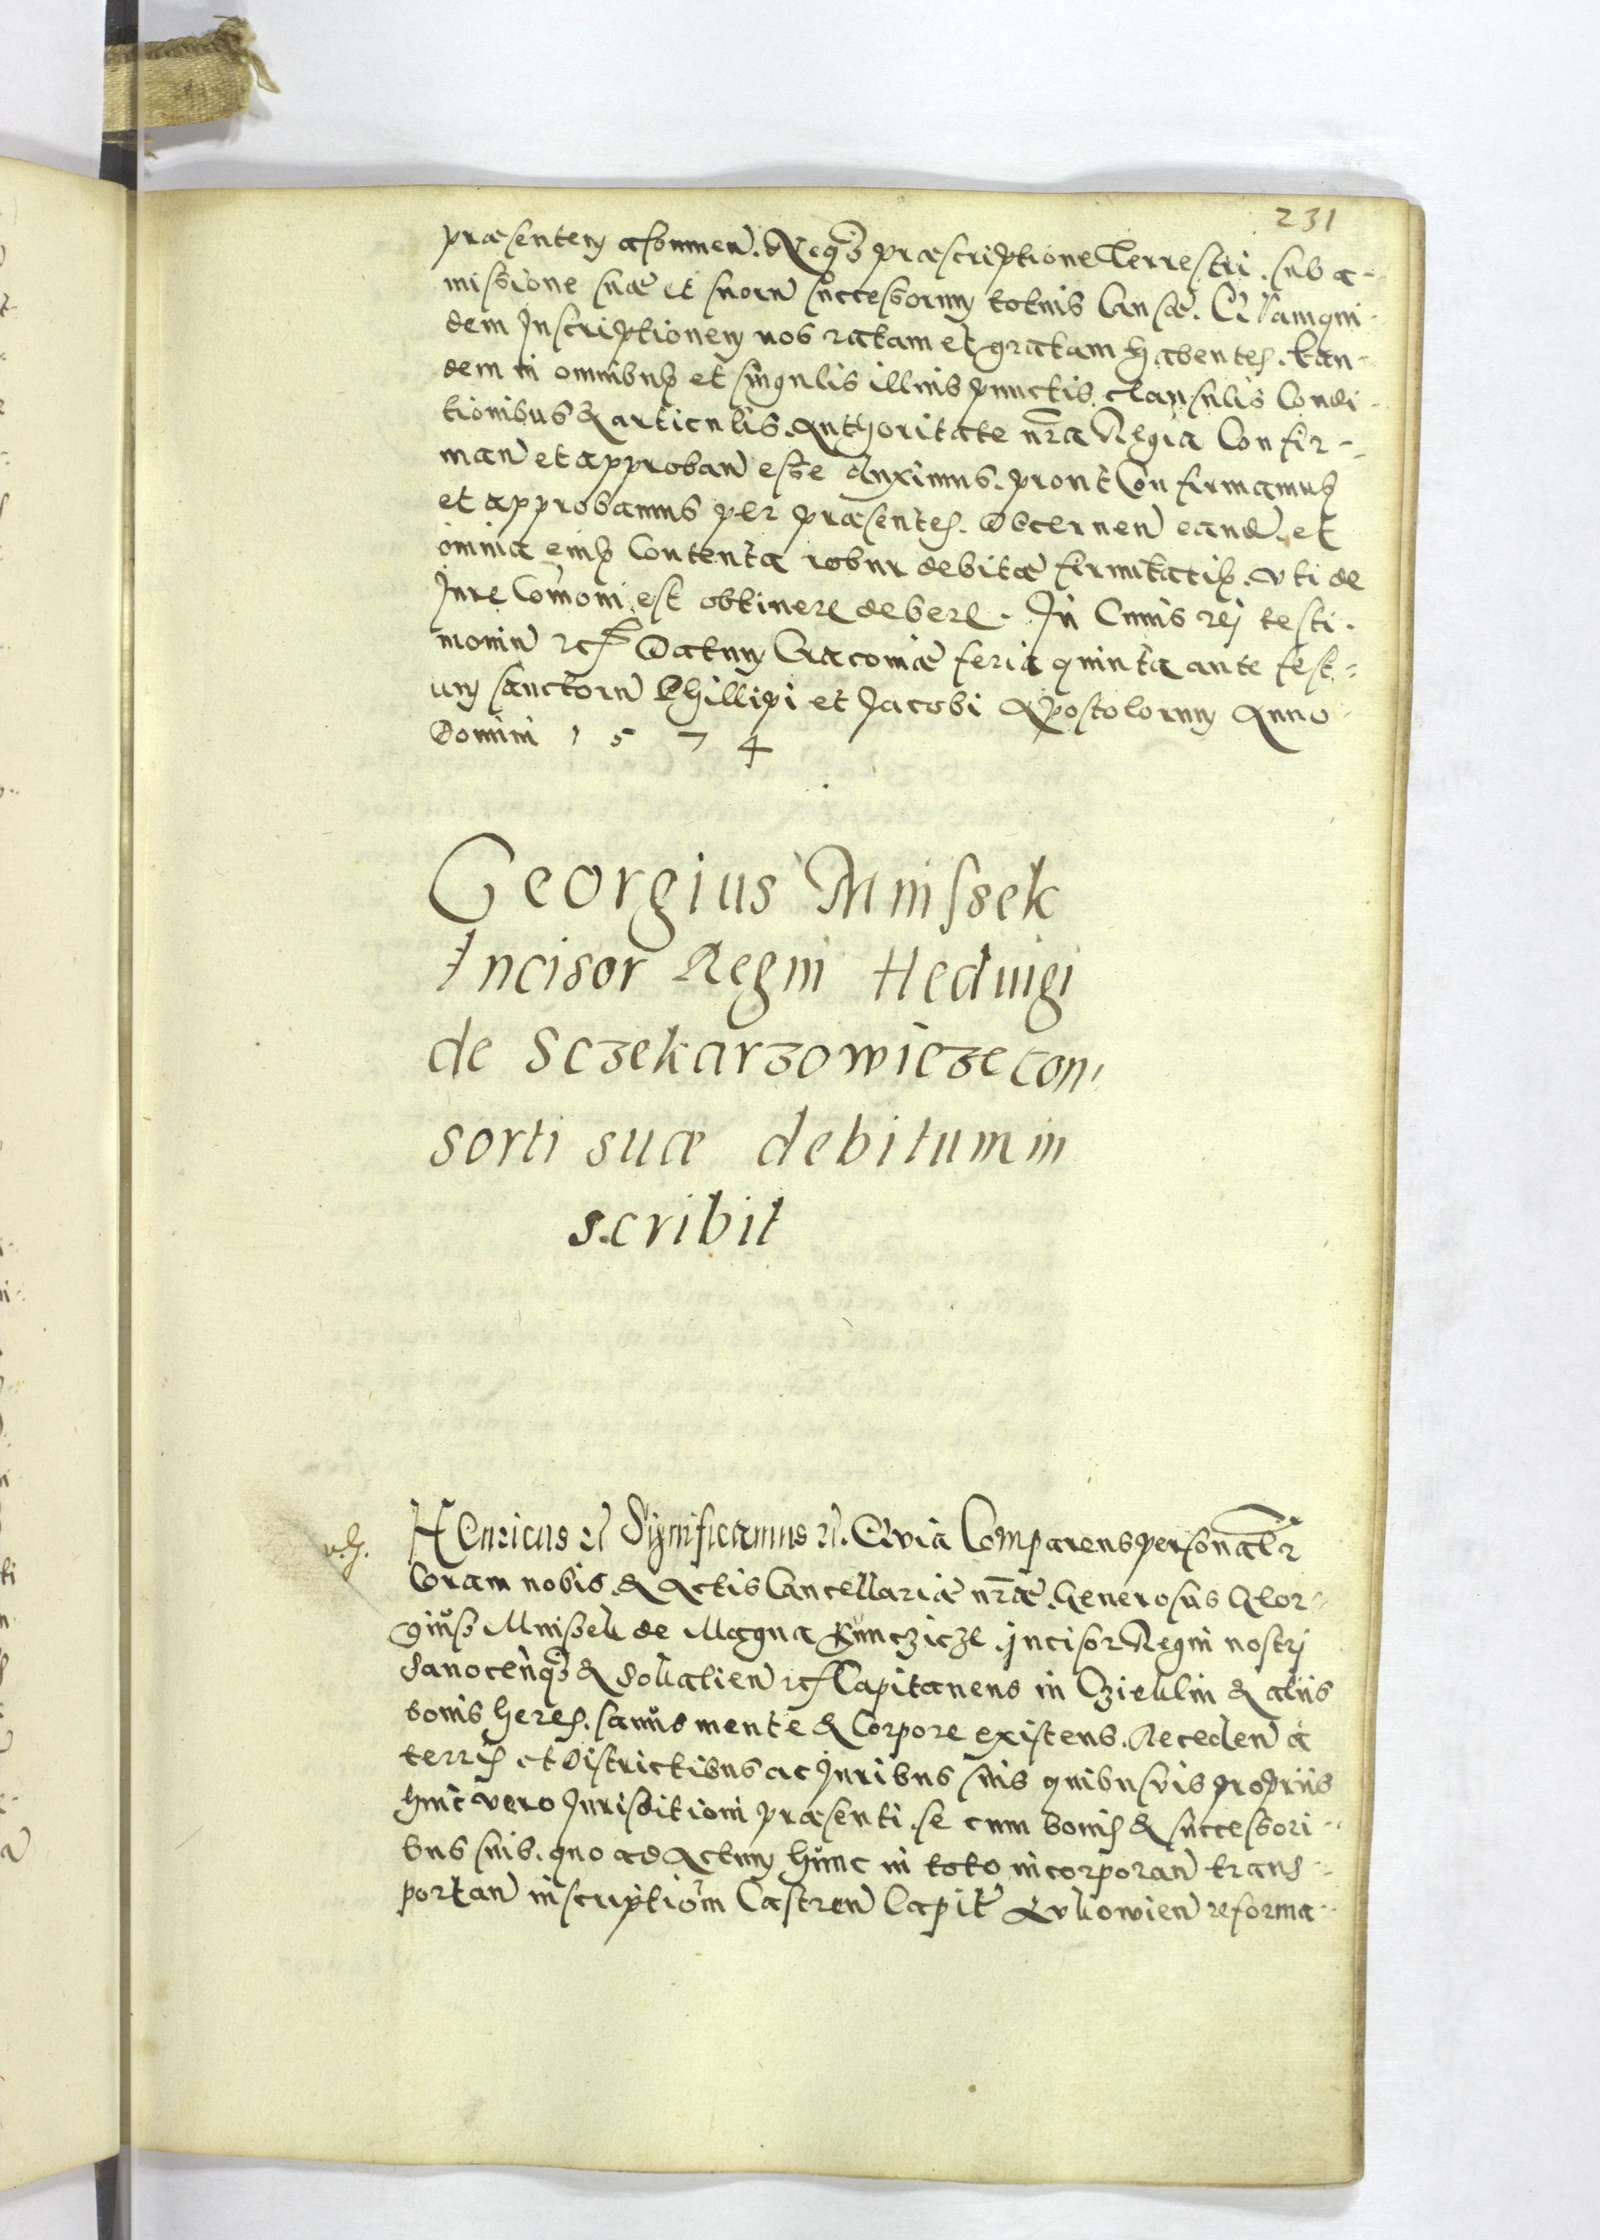 231
præsentem assummen̄. Neq3 præscriptione Terrestri. sub a-
missione suæ et suorū successorum totius Causæ. Quamqui-
dem Inscriptionem nos ratam et gratam habentes. Ean-
dem in omnibus et singulis illius punctis, clausulis Condi-
tionibus & articulis. Authoritate nr̄a Regia Confir-
man̄ et approban̄ esse duximus. prout Confirmamus
et approbamus per præsentes. Decernen̄ eandē. et
omnia eius Contenta robur debitæ firmitatis. uti de
Jure Com̄oni est obtinere debere. In Cuius rej testi-
moniū etc Datum Cracoviæ feria quinta ante fest-
um sanctorū Phillipi et Jacobi Apostolorum Anno
Domini 1 5 7 4
Georgius Mnissek
Incisor Regni Heduigi
de Sczekarzowicze con,
sorti suæ debitum in
scribit
HEnricus etc Significamus etc. Quia Comparens personal̄r
Coram nobis & Actis Cancellariæ nr̄æ. Generosus Geor-
gius Mnissek de Magna Kunczicze. incisor Regni nostrj
Sanocen̄q3 & Sokalien̄ etc Capitaneus in & aliis
bonis heres. sanus mente & Corpore existens. Receden̄ a
terris et Districtibus ac Juribus suis quibusvis propriis
huic vero Jurisditioni præsenti. se cum bonis & successori-
bus suis. quo ad Actum hunc in toto incorporan̄ trans-
portan̄ inscriptiom̄ Castren̄ Capit̄ Lukowien̄ reforma-